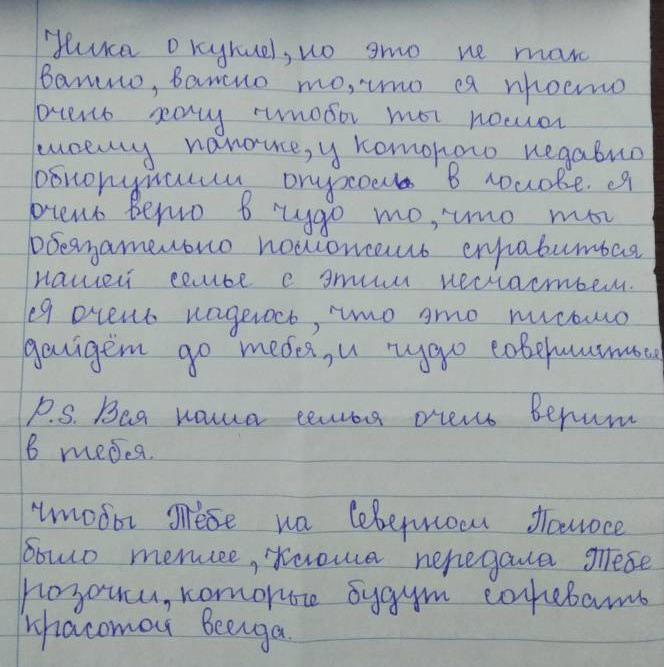 Ника о кукле), но это не так
важно, важно то, что я просто
очень хочу чтобы ты помог
моему папочке, у которого недавно
обноружили опухоль в голове. Я
очень верю в чудо то, что ты
обязательно поможешь справиться
нашей семье с этим несчастьем.
Я очень надеюсь, что это письмо
дайдёт до тебя, и чудо совершиться
P.S. Вся наша семья очень верит
в тебя.
Чтобы Тебе на Северном Полюсе
было теплее, Ксюша передала Тебе
розочки, которые будут согревать
красотой всегда.